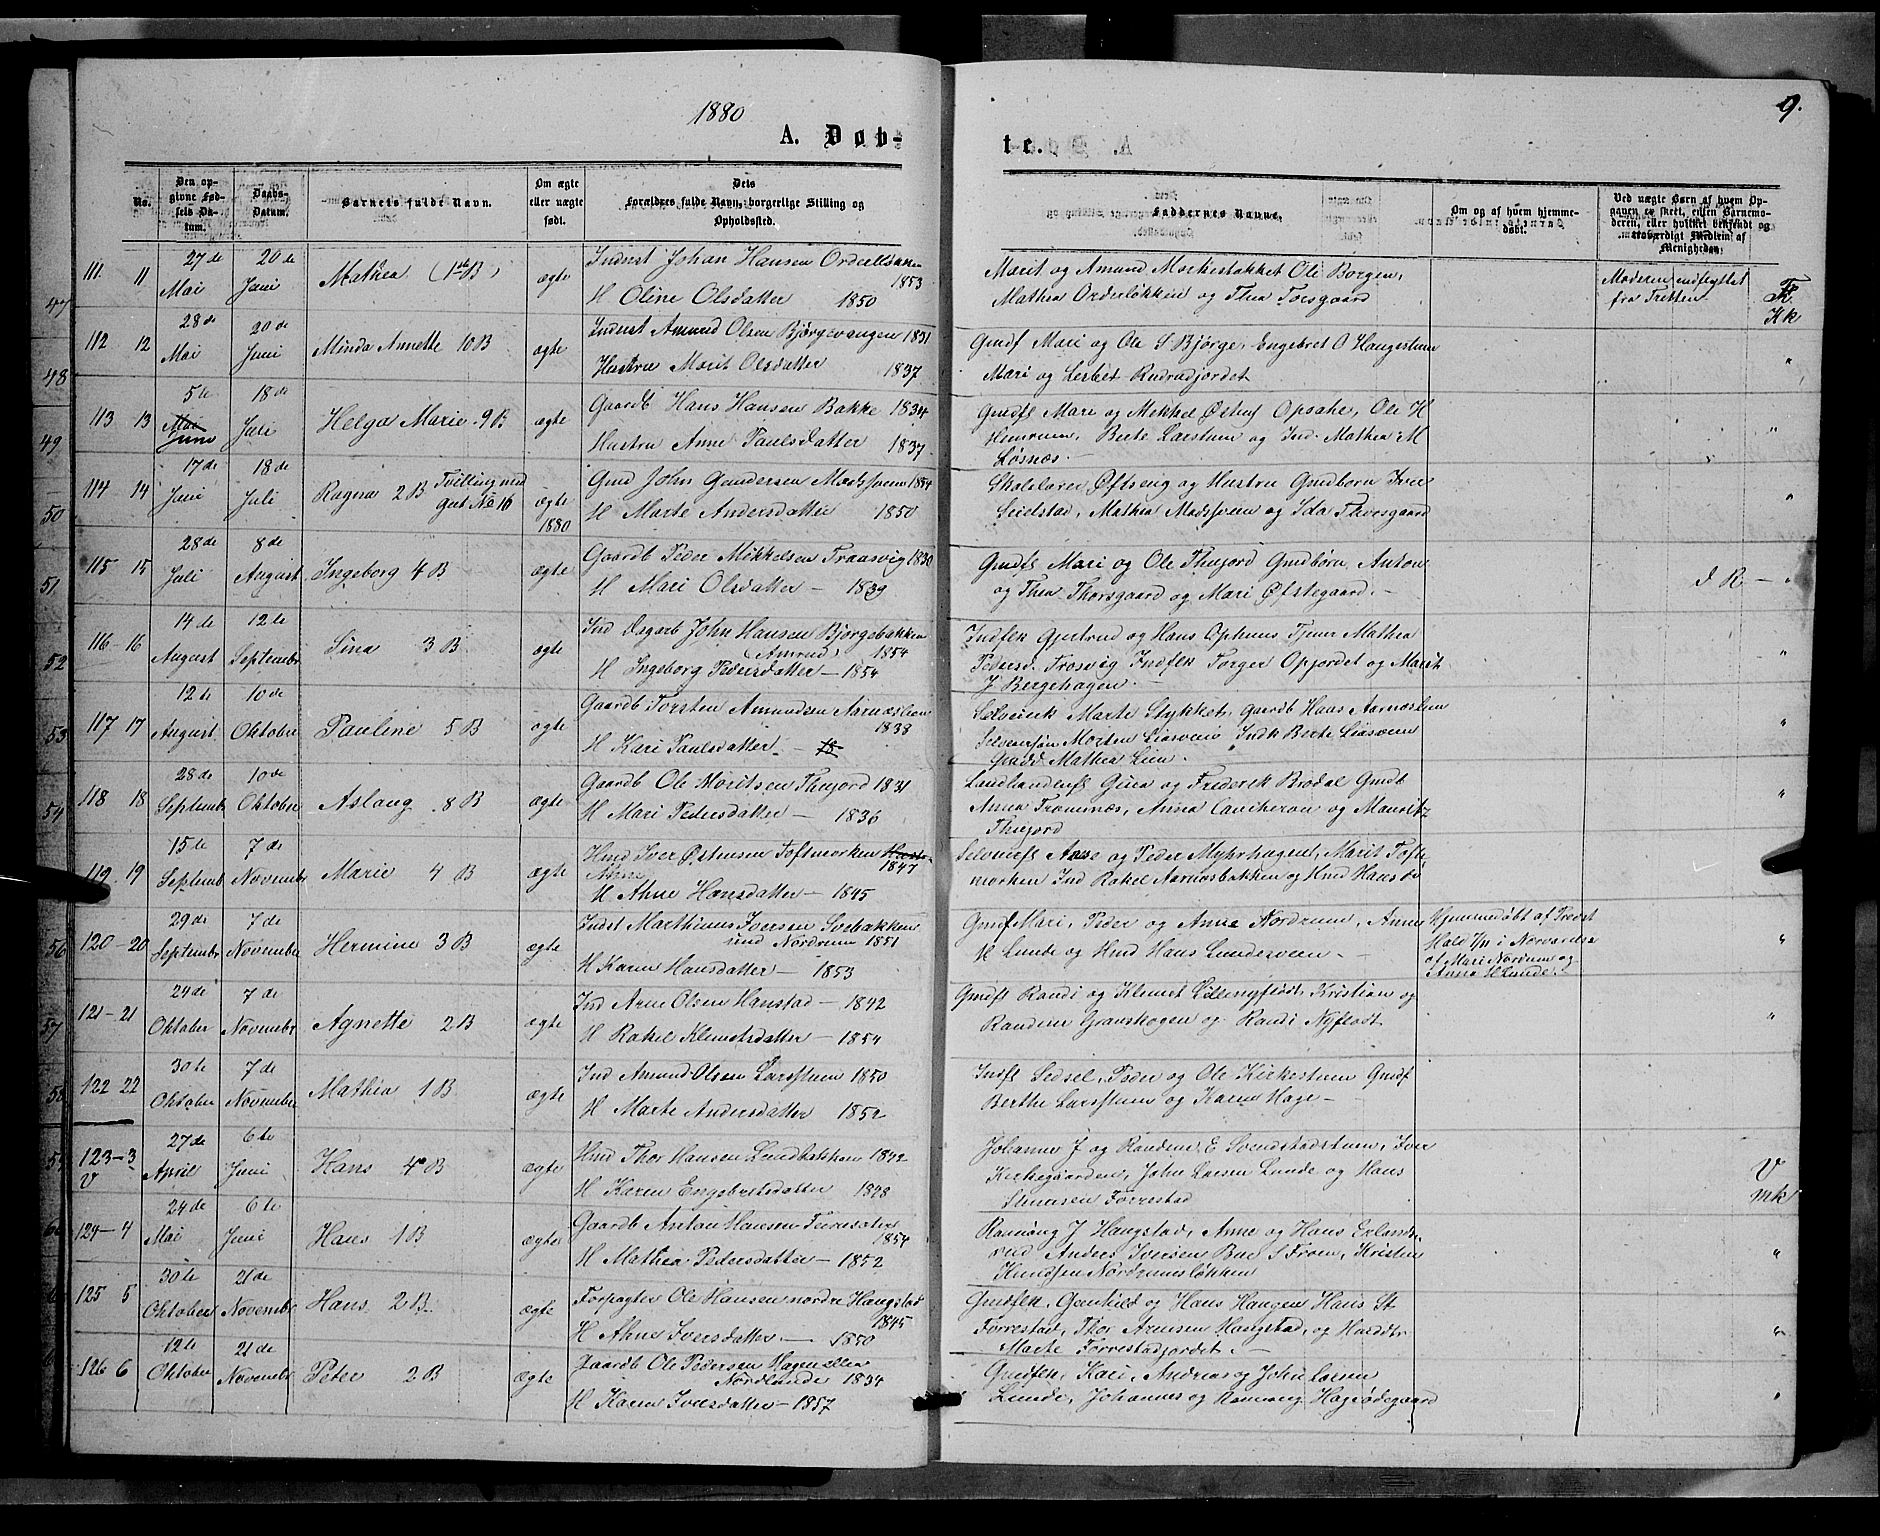 1880
9.
A. Døb-
te.
No.
Den op-
givne Fød-
sels Da-
tum.
Daabs-
Datum.
Barnets fulde Navn.
Om ægte
eller uægte
født.
Dets
Forældres fulde Navn, borgerlige Stilling og
Opholdssted.
Faddernes Navne.
Om og af hvem hjemme-
døbt.
Ved uægte Børn af hvem Op-
gaven er skeet, eller Barnemo-
deren, eller hvilket bekjendt og
troværdigt Medlem af
Menigheden.
111 11 27de Mai 20de Juni Mathea (1ste B) ægte
Inderst Johan Hansen 1853
H Oline Olsdatter 1850
Marit og Amund Morkestakket Ole Borgen,
Mathea Orderløkken og Thea Torsgaard
Moderen indflyttet
fra Tretten
Kk
112 12 28de Mai 20de Juni Minda Annette 10B ægte
Inderst Amund Olsen Bjørgevangen 1831
Hustru Marit Olsdatter 1837
Gmdf Mari og Ole S Bjørge, Engebret O Haugestuen
Mari og Lisbet Rudrudjordet
"
113 13 5te Mai Juni 18de Juli Helga Marie 9B ægte
Gaardb Hans Hansen Bakke 1834
Hustru Anne Paulsdatter 1837
Gmdfl Mari og Mikkel Østeng Opsahe, Ole H
Hemrum, Berte Larstuen og Ind. Mathea M
Løsnæs.
"
114 14 17de Juni 18de Juli Ragna 2B Tvilling med
Gut No 16 ægte
1880
Gmd John Gundersen Madssveen 1854
H Marte Andersdatter 1850
Skolelærer Øfsteng og Hustru Gmdbørn Iver
Leielstad, Mathea Madssveen og Ida Thorsgaard
"
115 15 28de Juli 8de August Ingeborg 4B ægte
Gaardb Peder Mikkelsen Traasvig 1830
H Mari Olsdatter – 1839
Gmdfl Mari og Ole Thujord Gmdbørn Anton
og Thea Thorsgaard og Mari Øfstegaard. –
d R –
116 – 16 14de August 12te Septembr Sina 3B ægte
Ind Dagarb John Hansen Bjørgebakken
(Amrud) 1854
H Ingeborg Pedersdatter – 1854
Indflk Gjertrud og Hans Ophuus Tjener Mathea
Pedersd. Trosvig Indflk Torger Opjordet og Marit
J Bergehagen –
"
117 17 12te August 10de Oktober Pauline 5B ægte
Gaardb Torsten Amundsen Aarnæslien
1838
H Kari Paulsdatter – 18
Selveierk Marte Stykket, gaardb Hans Aarnæslien
Selveiersøn Morten Liasveen Indk Berte Liasveen
Gmdd. Mathea Lien.
"
118 18 28de Septembr 10de Oktober Aslaug 8B ægte
Gaardb Ole Moritsen Thujord 1831
H Mari Pedersdatter – 1836
Landhandlerfl Gina og Frederik Brodal Gmdb
Anna Tromnæs, Anna Lancheron og Mauritz
Thujord
"
119 19 15te Septemb 7de Novembr Marie 4B ægte
Hmd Iver Østensen Toftmorken
1847
H Ahne Hansdatter – 1845
Selveierfl Anne og Peder Myhrhagen, Marit Toft-
morken Ind Rakel Aarnæsbakken og Hmd Hans do
120 – 20 29de Septembr 7de Novembr Hermine 3B ægte
Inderst Marthinus Iversen Svebakken
und Nordrum 1851
H Karin Hansdatter – 1853
Gmdf Mari, Peder og Anne Nordrum, Anne
H Lunde og Hmd Hans Lundesveen –
Hjemmedøbt af Præst
Hald 7/11 i Nærværelse
af Mari Nordrum og
Anna H Lunde.
"
121 – 21 24de Oktober 7de Novembr Agnette 2B ægte
Ind Arne Olsen Hanstad – 1842
H Rakel Klemetsdatter – 1854
Gmdfl Randi og Klemet Lillenyflødt Kristian og
Randine Granskogen og Randi Nyflødt
"
122 22 30te Oktober 7de Novembr Mathea 1B ægte
Ind Amund Olsen Larsstuen 1850
H Marte Andersdatter 1852
Indfl Sedsel, Peder og Ole Kirkestuen Gmdf
Berthe Larsstuen og Karen Hage –
123 – 3
V 27de April 6te Juni Hans 4B ægte
Hmd Thor Hansen Lundbakken 1842
H Karen Engebretsdatter 1848
Johanne J og Randine E Svendstadstuen, Iver
Kirkegaarden, John Larsen Lunde og Hans
Simensen Forrestad
V
mk
124 – 4 24de Mai 6te Juni Hans 1B ægte
Gaardb Anton Hansen 1854
H Mathea Pedersdatter – 1852
Rønnaug J Haugstad, Anne og Hans Exlands-
rud Anders Iversen Bue S From, Kristen
Knudsen Nordrumsløkken
"
125 5 30te Oktober 21de Novembr Hans 2B ægte
Forpagter Ole Hansen nordre Haugstad
1845
H Ahne Iversdatter – 1850
Gmdflk, Gunhild og Hans Haugen Hans St
Forrestad, Thor Arnesen Haugstad, og
Marte Forrestadjordet. –
"
126 6 12te Oktober 21de Novembr Peter 2B ægte
Gaardb Ole Pedersen Hagen eller
Nordlunde 1834
H Karen Iversdatter – 1857
Gmdflk, Kari, Andreas og John Larsen
Lunde, Johannes og Rønnaug Hageødegaard
"
47
48
49
50
51
52
53
54
56
57